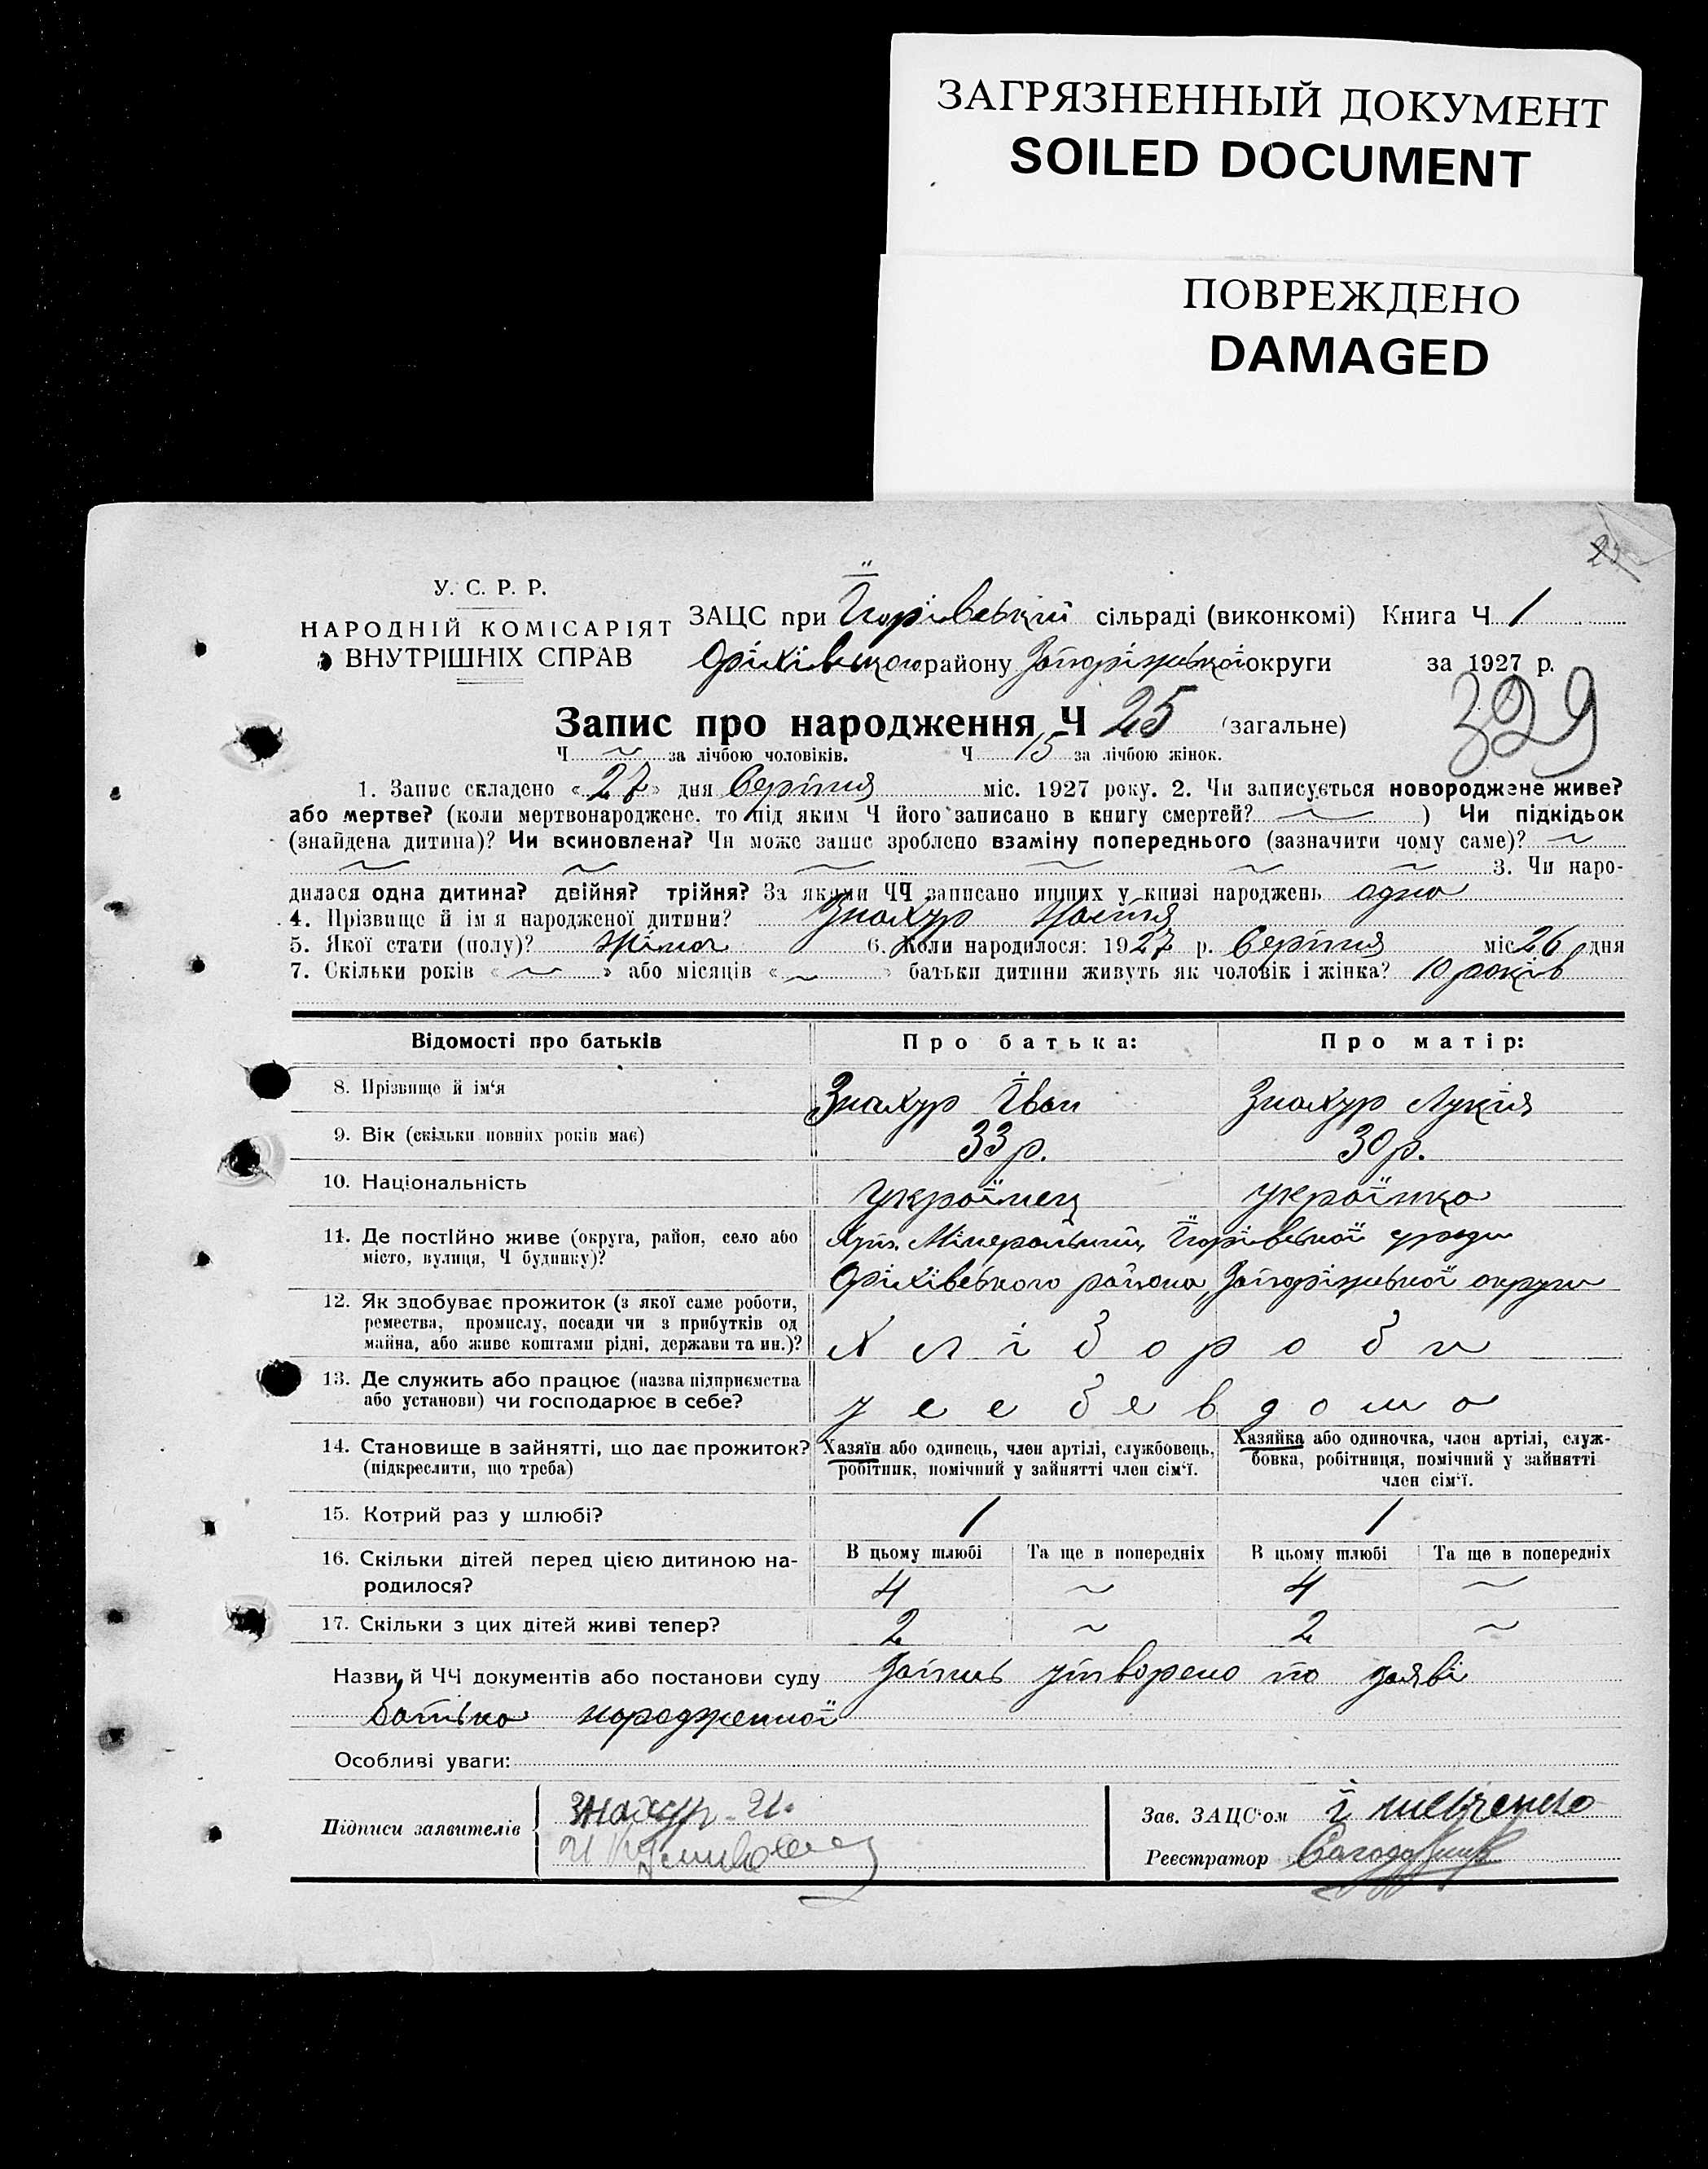 ЗАГРЯЗНЕННЫЙ ДОКУМЕНТ
SOILED DOCUMENT
ПОВРЕЖДЕНО
DAMAGED
У. С. Р. Р.
НАРОДНІЙ КОМІСАРІЯТ
ВНУТРІШНІХ СПРАВ
ЗАЦС при сільраді (виконкомі) Книга Ч 1
Оріхівського району Запоріжської округи за 1927 р.
329
Запис про народження Ч 25 (загальне)
Ч ~ за лічбою чоловіків. Ч 15 за лічбою жінок.
1. Запис складено « 27 » дня Серпня міс. 1927 року. 2. Чи записується новороджене живе?
або мертве? (коли мертвонароджене, то під яким Ч його записано в книгу смертей? ~ ) Чи підкідьок
(знайдена дитина)? Чи всиновлена? Чи може запис зроблено взаміну попереднього (зазначити чому саме)? ~
~ ~ ~ ~ ~ ~ 3. Чи наро-
дилася одна дитина? двійня? трійня? За якими ЧЧ записано инших у книзі народжень одна
4. Прізвище й ім я народженої дитини? Знахур Настя
5. Якої стати (полу)? Жіноч 6. Коли народилося: 1927 р. Серпня міс 26 дня
7. Скільки років « ~ » або місяців « ~ » батьки дитини живуть як чоловік і жінка? 10 років
Відомості про батьків Про батька: Про матір:
8. Прізвище й ім'я Знахур Іван Знахур Лукія
9. Вік (скільки повних років має) 33 р. 30 р.
10. Національність українец українка
11. Де постійно живе (округа, район, село або
місто, вулиця, Ч будинку)?
Хут. Мінеральний,
Оріхівського района, Запоріжської округи
12. Як здобуває прожиток (з якої саме роботи,
ремества, промислу, посади чи з прибутків од
майна, або живе коштами рідні, держави та ин.)?
Хлібороби
13. Де служить або працює (назва підприємства
або установи) чи господарює в себе?
у себе вдома
14. Становище в зайнятті, що дає прожиток?
(підкреслити, що треба)
Хазяїн або одинець, член артілі, службовець,
робітник, помічний у зайнятті член сім'ї.
Хазяйка або одиночка, член артілі, служ-
бовка, робітниця, помічний у зайнятті
член сім'ї.
15. Котрий раз у шлюбі? 1 1
16. Скільки дітей перед цією дитиною на-
родилося?
В цьому шлюбі Та ще в попередніх В цьому шлюбі Та ще в попередніх
4 ~ 4 ~
17. Скільки з цих дітей живі тепер? 2 ~ 2 ~
Назви й ЧЧ документів або постанови суду Запись утворено по заяві
батька народженної
Особливі уваги:
Підписи заявителів
Знахур. И.
Зав. ЗАЦС'ом
Реєстратор